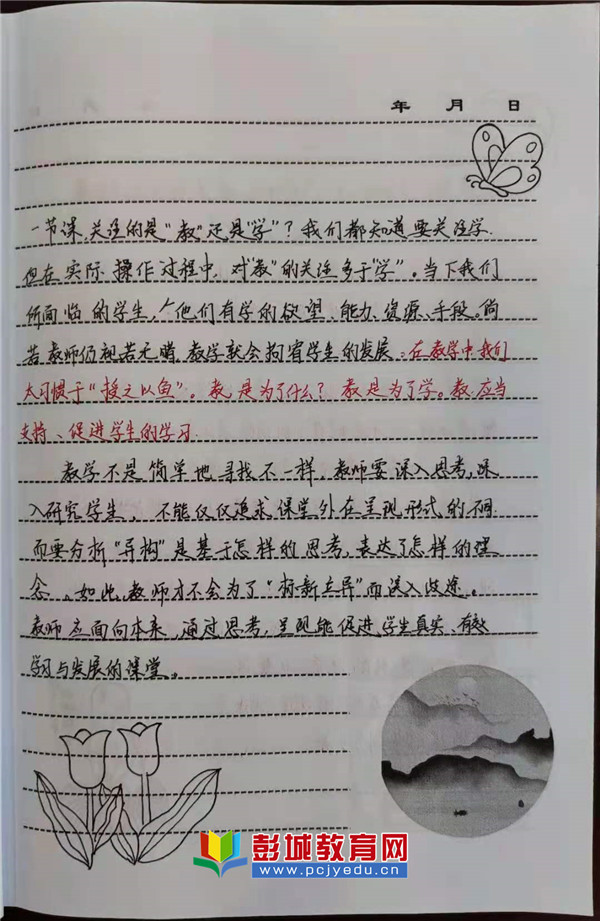 年 月 日
一节课,关注的是“教”还是“学”?我们都知道要关注学.
但在实际操作过程中,对“教”的关注多于“学”。当下我们
所面临的学生,个他们有学的欲望、能力、资源、手段。倘
若教师仍视若无睹,教学就会拘宥学生的发展.在教学中,我们
太习惯于“授之以鱼”。教是为了什么?教是为了学。教应当
支持、促进学生的学习.
教学不是简单地寻找不一样.教师要深入思考,深
入研究学生,不能仅仅追求课堂外在呈现形式的不同.
而要分析“异构”是基于怎样的思考,表达了怎样的理
念。如此,教师才不会为了“标新立异”而误入歧途。
教师应面向本来,通过思考,呈现能促进学生真实、有效
学习与发展的课堂。
彭城教育网
www.pcjyedu.cn